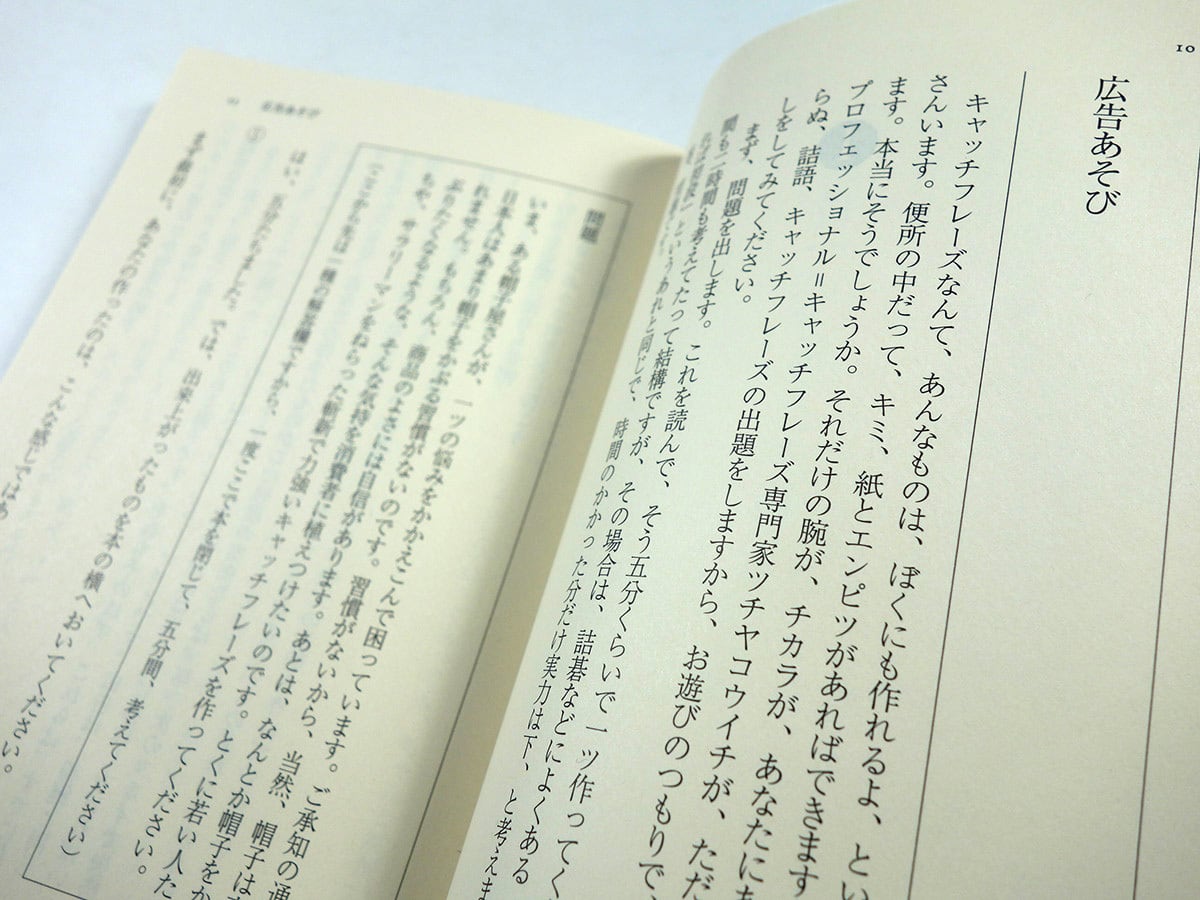 10
広告あそび
キャッチフレーズなんて、あんなものは、ぼくにも作れるよ、とい
さんいます。便所の中だって、キミ、紙とエンピツがあればできます
ます。本当にそうでしょうか。それだけの腕が、チカラが、あなたにも
プロフェッショナル=キャッチフレーズ専門家ツチヤコウイチが、ただ
らぬ、詰語、キャッチフレーズの出題をしますから、お遊びのつもりで、
しをしてみてください。
まず、問題を出します。これを読んで、そう五分くらいで一ツ作ってく
間も二時間も考えてたって結構ですが、その場合は、詰碁などによくある
というあれと同じで、時間のかかった分だけ実力は下、と考えま
広告あそび
問題
いま、ある帽子屋さんが、一ツの悩みをかかえこんで困っています。ご承知の通
日本人はあまり帽子をかぶる習慣がないのです。習慣がないから、当然、帽子は
れません。もちろん、商品のよさには自信があります。あとは、なんとか帽子をか
ぶりたくなるような、そんな気持を消費者に植えつけたいのです。とくに若い人た
ちや、サラリーマンをねらった斬新で力強いキャッチフレーズを作ってください。
(ここから先は一種の解答欄ですから、一度ここで本を閉じて、五分間、考えてください)
①
はい、五分たちました。では、出来上がったものを本の横へおいてください。
まず最初に、あなたの作ったのは、こんな感じではあ